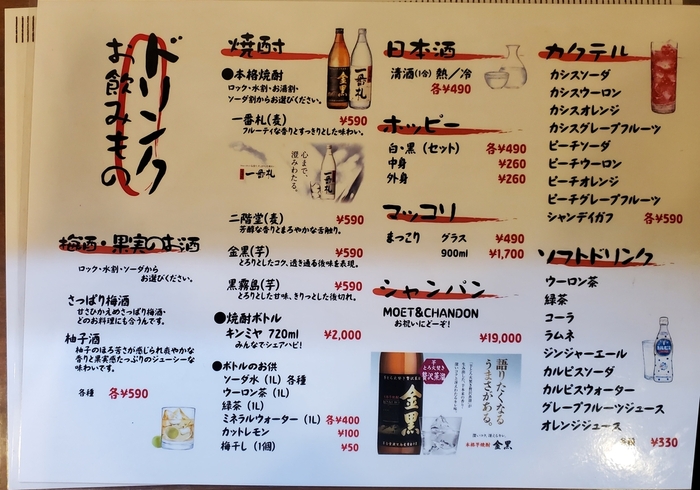 ドリンク
お飲みもの
梅酒・果実のお酒
ロック・水割・ソーダから
お選びください。
さっぱり梅酒
甘さひかえめさっぱり梅酒・
どのお料理にも合うんです。
柚子酒
柚子のほろ苦さが感じられ爽やかな
香りと果実感たっぷりのジューシーな
味わいです。
各種 各¥590
焼酎
●本格焼酎
ロック・水割・お湯割・
ソーダ割からお選びください。
一番札(麦) ¥590
フルーティな香りとすっきりとした味わい。
一番札
心まで、
澄みわたる。
二階堂(麦) ¥590
芳醇な香りとまろやかな舌触り。
金黒(芋) ¥590
とろりとしたコク、透き通る後味を表現。
黒霧島(芋) ¥590
とろりとした甘味、きりっとした後切れ。
●焼酎ボトル
キンミヤ 720ml ¥2,000
みんなでシェアハピ!
●ボトルのお供
ソーダ水 (1L) 各種
ウーロン茶 (1L)
緑茶 (1L)
ミネラルウォーター (1L) 各¥400
カットレモン ¥100
梅干し (1個) ¥50
日本酒
清酒(1合) 熱/冷
各¥490
ホッピー
白・黒 (セット) 各¥490
中身 ¥260
外身 ¥260
マッコリ
まっこり グラス ¥490
900ml ¥1,700
シャンパン
MOET&CHANDON
お祝いにどーぞ!
¥19,000
金黒
芋
とろ火焚き
贅沢蒸溜
語りたくなる
うまさがある。
本格芋焼酎 金黒
カクテル
カシスソーダ
カシスウーロン
カシスオレンジ
カシスグレープフルーツ
ピーチソーダ
ピーチウーロン
ピーチオレンジ
ピーチグレープフルーツ
シャンデイガフ 各¥590
ソフトドリンク
ウーロン茶
緑茶
コーラ
ラムネ
ジンジャーエール
カルピスソーダ
カルピスウォーター
グレープフルーツジュース
オレンジジュース
¥330